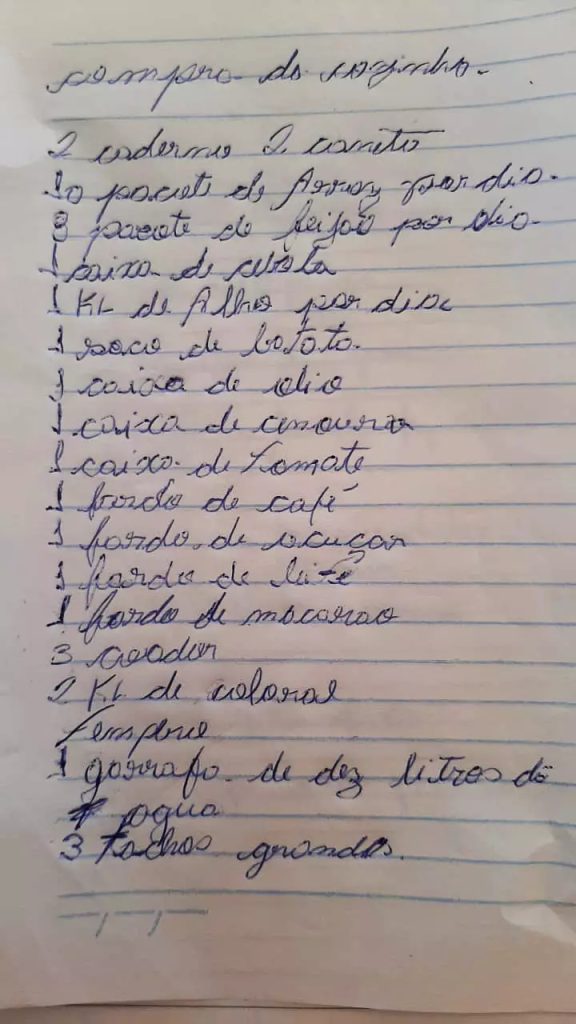 compra da cozinha.
2 caderno 2 caneta
10 pacote de Arroz por dia.
3 pacote de feijão por dia.
1 caixa de cebola
1 KL de Alho por dia
1 saco de batata.
1 caixa de olio
1 caixa de cenoura
1 caixa de Tomate
1 fardo de café
1 fardo de acuçar
1 fardo de leite
1 fardo de macarao
3 coador
2 KL de coloral
Tempero
1 garrafa de dez litros de
agua
3 Tachos grandes.